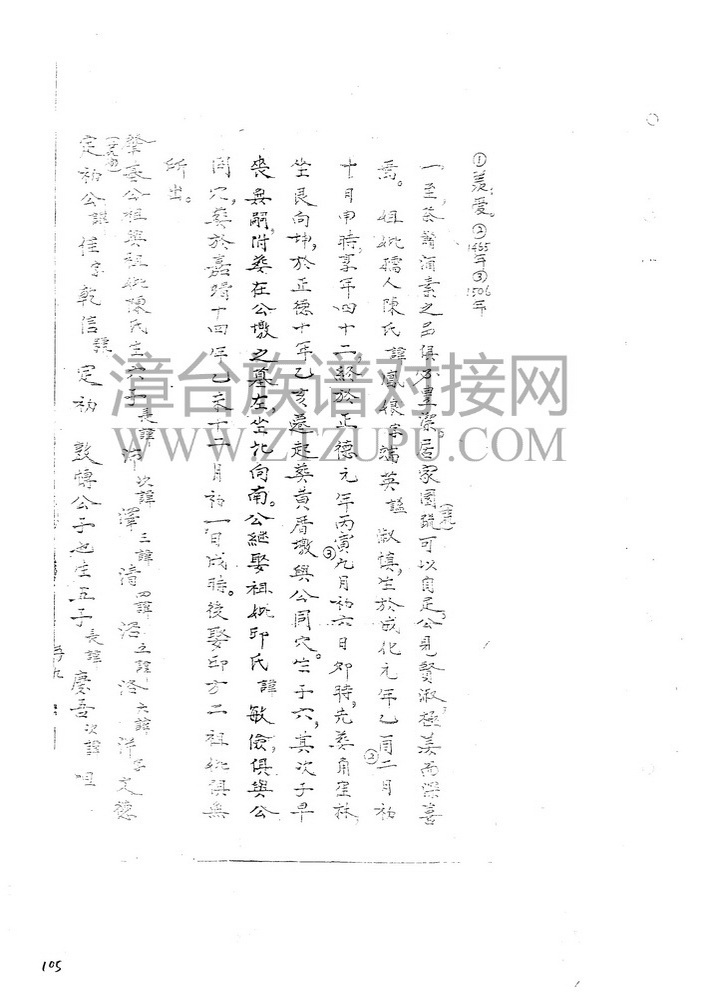 ①羡爱。②1465年③1506年
一至茶 酒素之品俱 豐潔。居家園蔬可以自足，公見賢淑極美而深喜
焉。 祖妣孺人陳氏 諱鳳娘 字端英 謚 淑慎，生於成化元年乙酉②二月初
十日申時，享年四十二，終於正德元年丙寅③九月初六日卯時，先葬角 林，
坐艮向坤，於正德十年乙亥還起葬黄厝墩與公同穴。生子六，其次子早
喪無嗣，附葬在公墩之墓左，坐北向南。公繼娶祖妣邱氏 諱 敏儉，俱與公
同穴，葬於嘉靖十四年乙未十二月初一日戌時。後娶邱方二祖妣俱無
所出。
肇基公祖與祖妣陳氏生六子 長諱 沛 次諱 澤 三諱 清 四諱 洛 五諱 六諱 洋 字文德
定初公 諱 佳 字 乾信 號 定初 敦轉公子也生五子 長諱 慶吾 次諱
漳台族谱对接网
WWW.ZTZUPU.COM
105